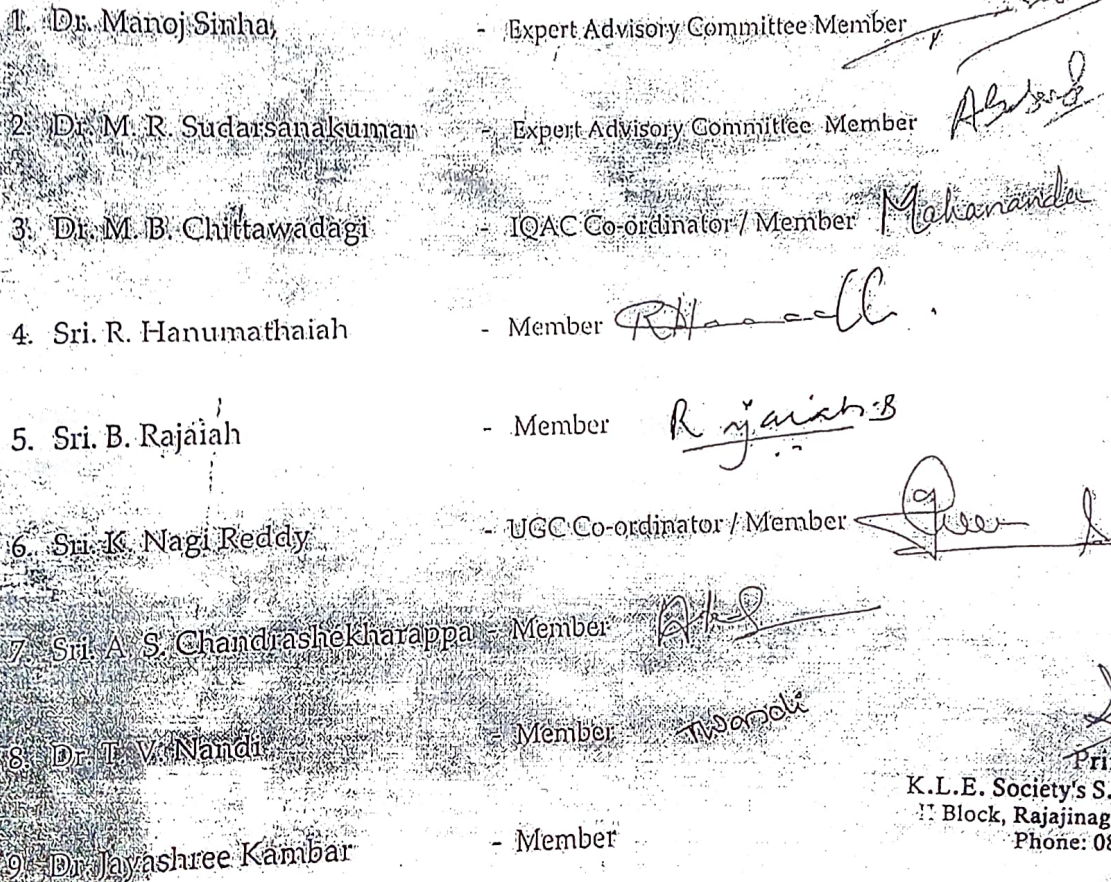 1. Dr. Manoj Sinha, - Expert Advisory Committee Member
2. Dr. M. R. Sudarsanakumar - Expert Advisory Committee Member
3. Dr. M. B. Chittawadagi - IQAC Co-ordinator / Member Mahananda
4. Sri. R. Hanumathaiah - Member
5. Sri. B. Rajaiah - Member Rajaiah.B
6. Sri. K. Nagi Reddy - UGC Co-ordinator / Member
7. Sri. A. S. Chandrashekharappa - Member
8. Dr. T. V. Nandi - Member TVNandi
Pri
K.L.E. Society's S.
Block, Rajajinag
Phone: 08
9. Dr Jayashree Kambar - Member